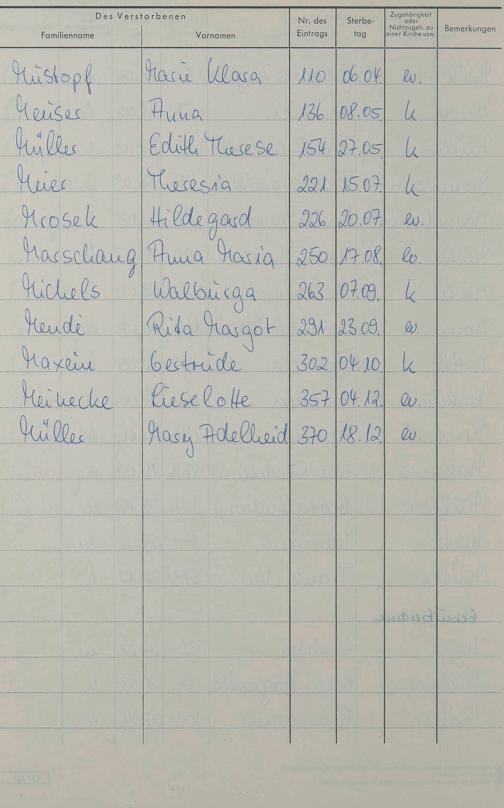 Des Verstorbenen Nr. des Eintrags Sterbe-tag Zugehörigkeit oder Nichtzugeh. zu einer Kirche usw. Bemerkungen
Familienname Vornamen
Müstopf Marie Klara 110 06.04. ev.
Meuser Anna 136 08.05. k
Müller Edith Therese 154 27.05. k
Meier Theresia 221 15.07. k
Mrosek Hildegard 226 20.07. ev.
Marschang Anna Maria 250 17.08. ev.
Michels Walburga 263 07.09. k
Mende Rita Margot 291 23.09. ev
Maxein Gertrude 302 04.10. k
Meinecke Lieselotte 357 04.12. ev.
Müller Mary Adelheid 370 18.12. ev.